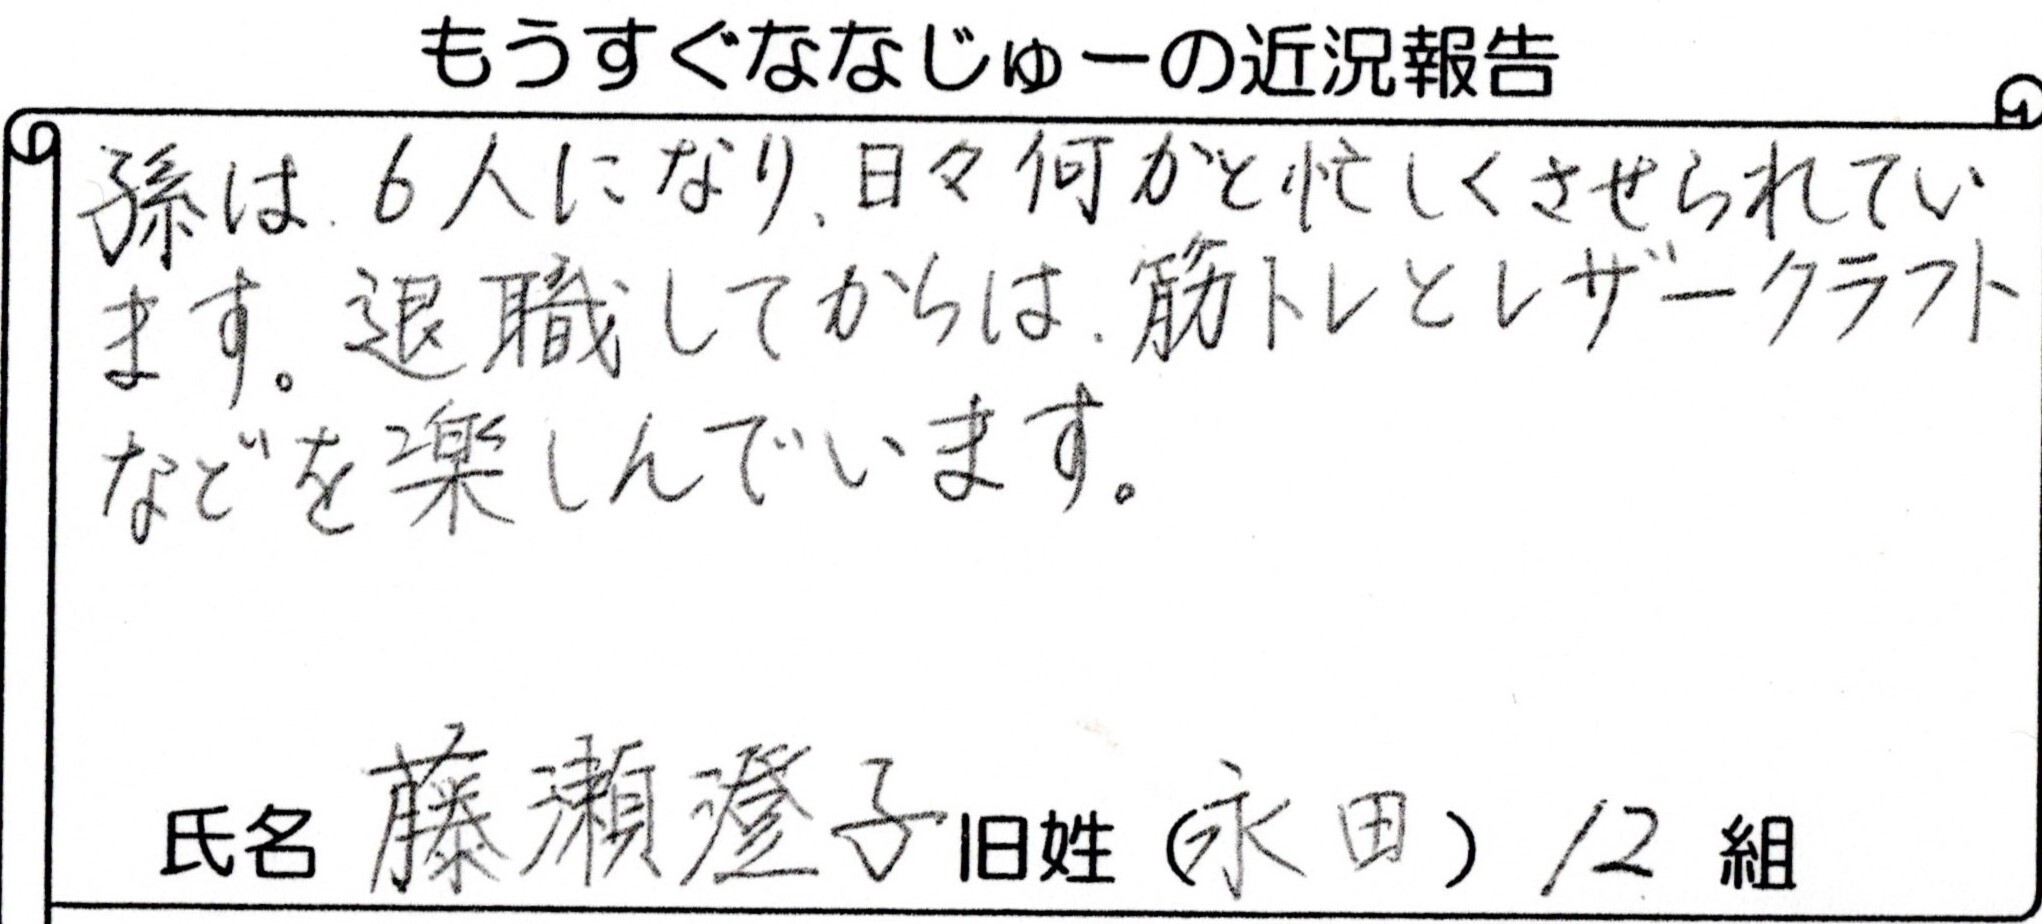 もうすぐななじゅーの近況報告
孫は、6人になり、日々何がと忙しくさせられてい
ます。退職してからは、筋トレとレザークラフト
などを楽しんでいます。
氏名 藤瀬澄子 旧姓（永田）12組